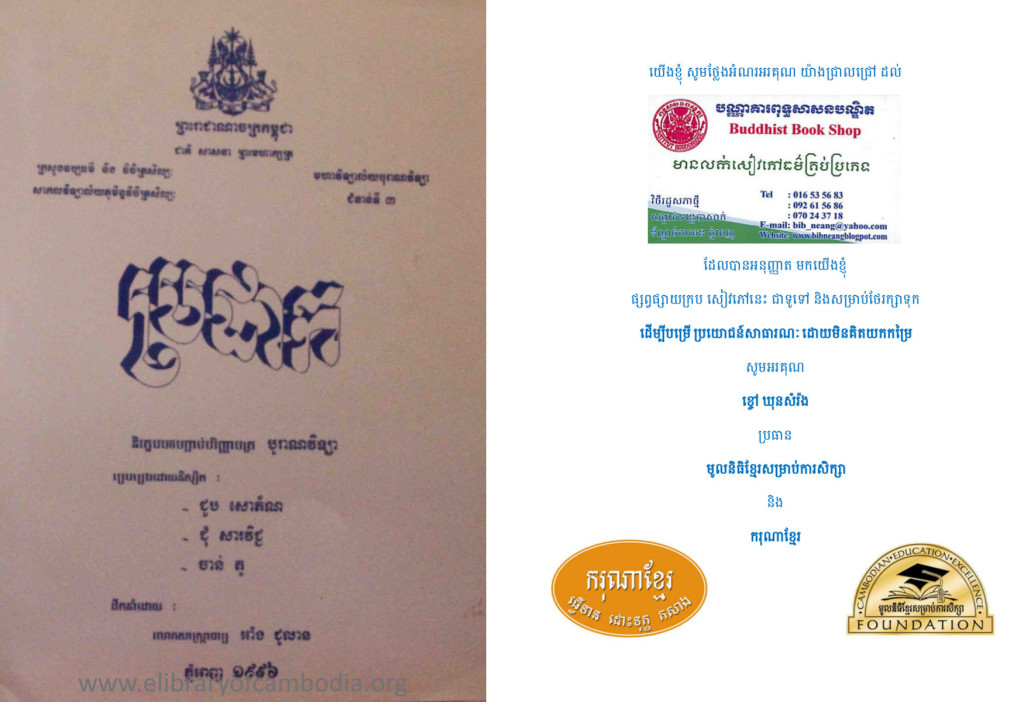 ព្រះរាជាណាចក្រកម្ពុជា
ជាតិ សាសនា ព្រះមហាក្សត្រ
ក្រសួងវប្បធម៌ និង វិចិត្រសិល្បៈ
សាកលវិទ្យាល័យភូមិន្ទវិចិត្រសិល្បៈ
មហាវិទ្យាល័យបុរាណវិទ្យា
ជំនាន់ទី ៣
ប្រដាក
និក្ខេបបទបញ្ចប់បរិញ្ញាបត្រ បុរាណវិទ្យា
រៀបរៀងដោយនិស្សិត :
- ជួប សោភ័ណ
- ជុំ សារវិជ្ជ
- ចាន់ គូ
ដឹកនាំដោយ :
លោកសាស្ត្រាចារ្យ អាំង ជូលាន
ភ្នំពេញ ១៩៩៦
www.elibraryofcambodia.org
យើងខ្ញុំ សូមថ្លែងអំណរអរគុណ យ៉ាងជ្រាលជ្រៅ ដល់
បណ្ណាគារពុទ្ធសាសនបណ្ឌិត
Buddhist Book Shop
មានលក់សៀវភៅធម៌គ្រប់ប្រភេទ
Tel : 016 53 56 83
: 092 61 56 86
: 070 24 37 18
E-mail: bib_neang@yahoo.com
Website: www.bibneangblogpot.com
ដែលបានអនុញ្ញាត មកយើងខ្ញុំ
ផ្សព្វផ្សាយក្រប សៀវភៅនេះ ជាទូទៅ និងសម្រាប់ថែរក្សាទុក
ដើម្បីបម្រើ ប្រយោជន៍សាធារណៈ ដោយមិនគិតយកកម្រៃ
សូមអរគុណ
ខ្ចៅ ឃុនសំរ៉ង
ប្រធាន
មូលនិធិខ្មែរសម្រាប់ការសិក្សា
និង
ករុណាខ្មែរ
ករុណាខ្មែរ
ធ្វើទាន ដោះទុក្ខ កសាង
CAMBODIAN·EDUCATION·EXCELLENCE
មូលនិធិខ្មែរសម្រាប់ការសិក្សា
FOUNDATION